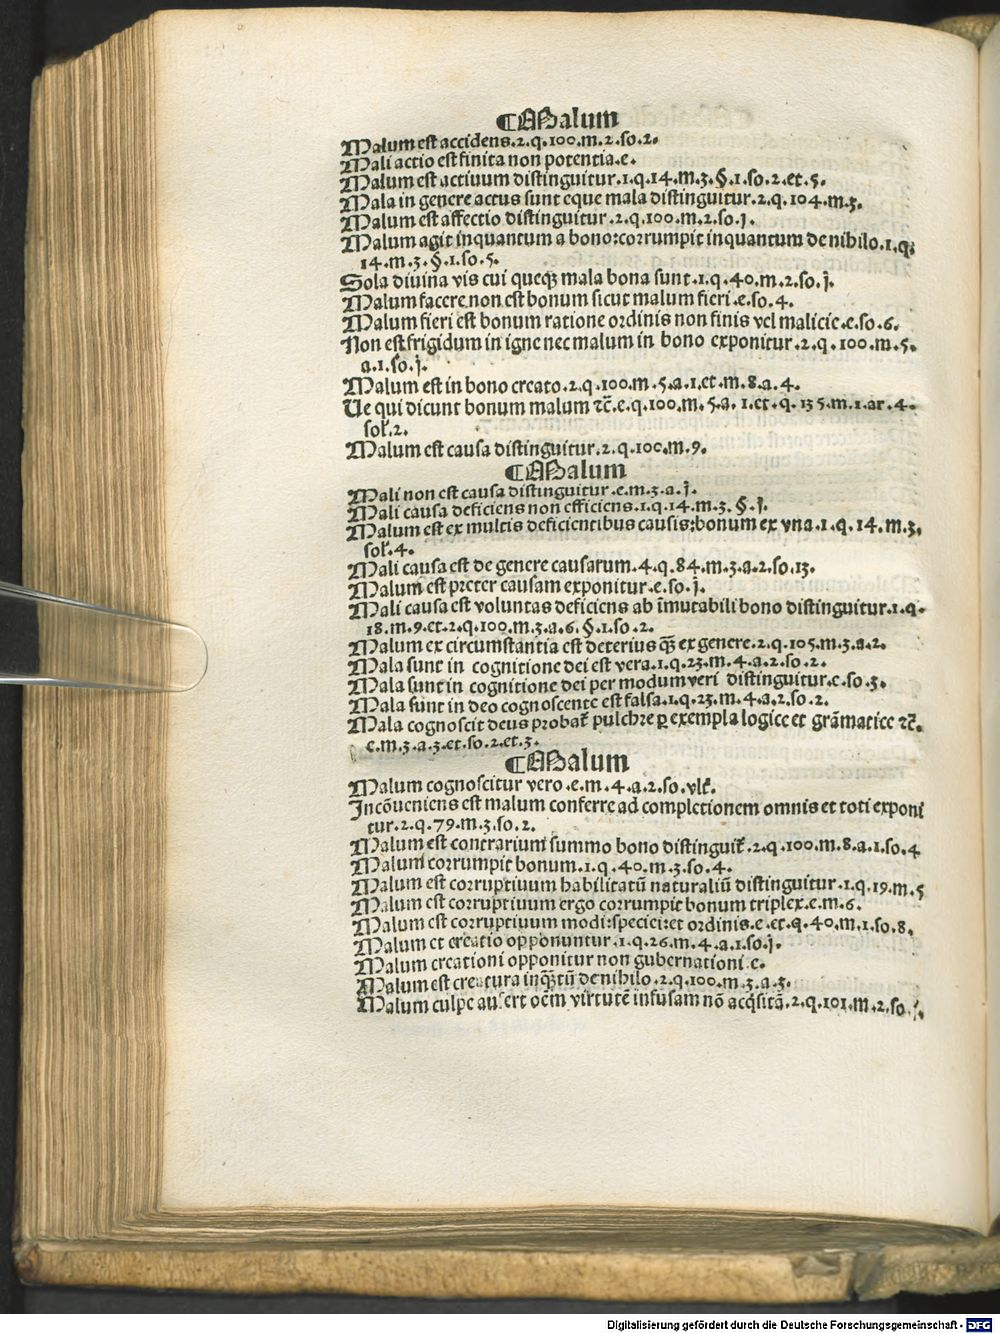 ¶Malum
Malum est accidens.2.q.100.m.2.so.2.
Mali actio est finita non potentia.e.
Malum est actiuum distinguitur.1.q.14.m.3.§.1.so.2.et.5.
Mala in genere actus sunt eque mala distinguitur.2.q.104.m.3.
Malum est affectio distinguitur.2.q.100.m.2.so.j.
Malum agit inquantum a bono:corrumpit inquantum de nihilo.1.q.
14.m.3.§.1.so.5.
Sola diuina vis cui queqꝫ mala bona sunt.1.q.40.m.2.so.j.
Malum facere non est bonum sicut malum fieri.e.so.4.
Malum fieri est bonum ratione ordinis non finis vel malicie.e.so.6.
Non est frigidum in igne nec malum in bono exponitur.2.q.100.m.5.
a.1.so.j.
Malum est in bono creato.2.q.100.m.5.a.1.et.m.8.a.4.
Ue qui dicunt bonum malum ⁊c̄.e.q.100.m.5.a.1.et.q.135.m.1.ar.4.
sol̛.2.
Malum est causa distinguitur.2.q.100.m.9.
¶Malum
Mali non est causa distinguitur.e.m.3.a.j.
Mali causa deficiens non efficiens.1.q.14.m.3.§.j.
Malum est ex multis deficientibus causis:bonum ex vna.1.q.14.m.3.
sol̛.4.
Mali causa est de genere causarum.4.q.84.m.3.a.2.so.13.
Malum est preter causam exponitur.e.so.j.
Mali causa est voluntas deficiens ab īmutabili bono distinguitur.1.q.
18.m.9.et.2.q.100.m.3.a.6.§.1.so.2.
Malum ex circumstantia est deterius qꝫ̄ ex genere.2.q.105.m.3.a.2.
Mala sunt in cognitione dei est vera.1.q.23.m.4.a.2.so.2.
Mala sunt in cognitione dei per modum veri distinguitur.e.so.3.
Mala sunt in deo cognoscente est falsa.1.q.23.m.4.a.2.so.2.
Mala cognoscit deus probat̛ pulchre ꝑ exempla logice et grāmatice ⁊c̄.
e.m.3.a.3.et.so.2.et.3.
¶Malum
Malum cognoscitur vero.e.m.4.a.2.so.vlt̛.
Incōueniens est malum conferre ad completionem omnis et toti exponi
tur.2.q.79.m.3.so.2.
Malum est contrarium summo bono distinguit̛.2.q.100.m.8.a.1.so.4
Malum corrumpit bonum.1.q.40.m.3.so.4.
Malum est corruptiuum habilitatū naturaliū distinguitur.1.q.19.m.5
Malum est corruptiuum ergo corrumpit bonum triplex.e.m.6.
Malum est corruptiuum modi:speciei:et ordinis.e.et.q.40.m.1.so.8.
Malum et creatio opponuntur.1.q.26.m.4.a.1.so.j.
Malum creationi opponitur non gubernationi.e.
Malum est creatura inqꝫ̄tū de nihilo.2.q.100.m.3.a.3.
Malum culpe aufert oēm virtutē infusam nō acq̇sitā.2.q.101.m.2.so.j.
Digitalisierung gefördert durch die Deutsche Forschungsgemeinschaft - DFG